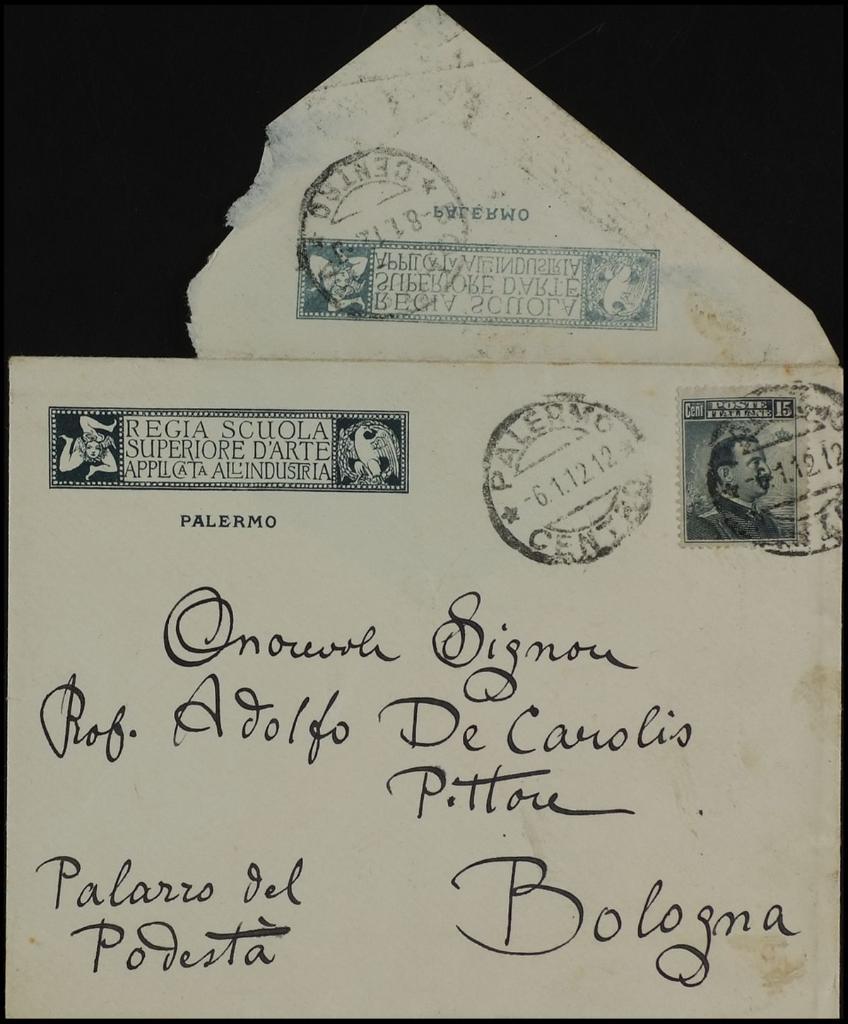 CENTRO
8.1.12
PALERMO
REGIA SCUOLA
SUPERIORE D'ARTE
APPLICATA ALL'INDUSTRIA
REGIA SCUOLA
SUPERIORE D'ARTE
APPLICATA ALL'INDUSTRIA
PALERMO
PALERMO
-6.1.12.12
CENTRO
Cent POSTE ITALIANE 15
-6.1.12.12
Onorevole Signor
Prof. Adolfo De Carolis
Pittore
Palazzo del
Podestà
Bologna